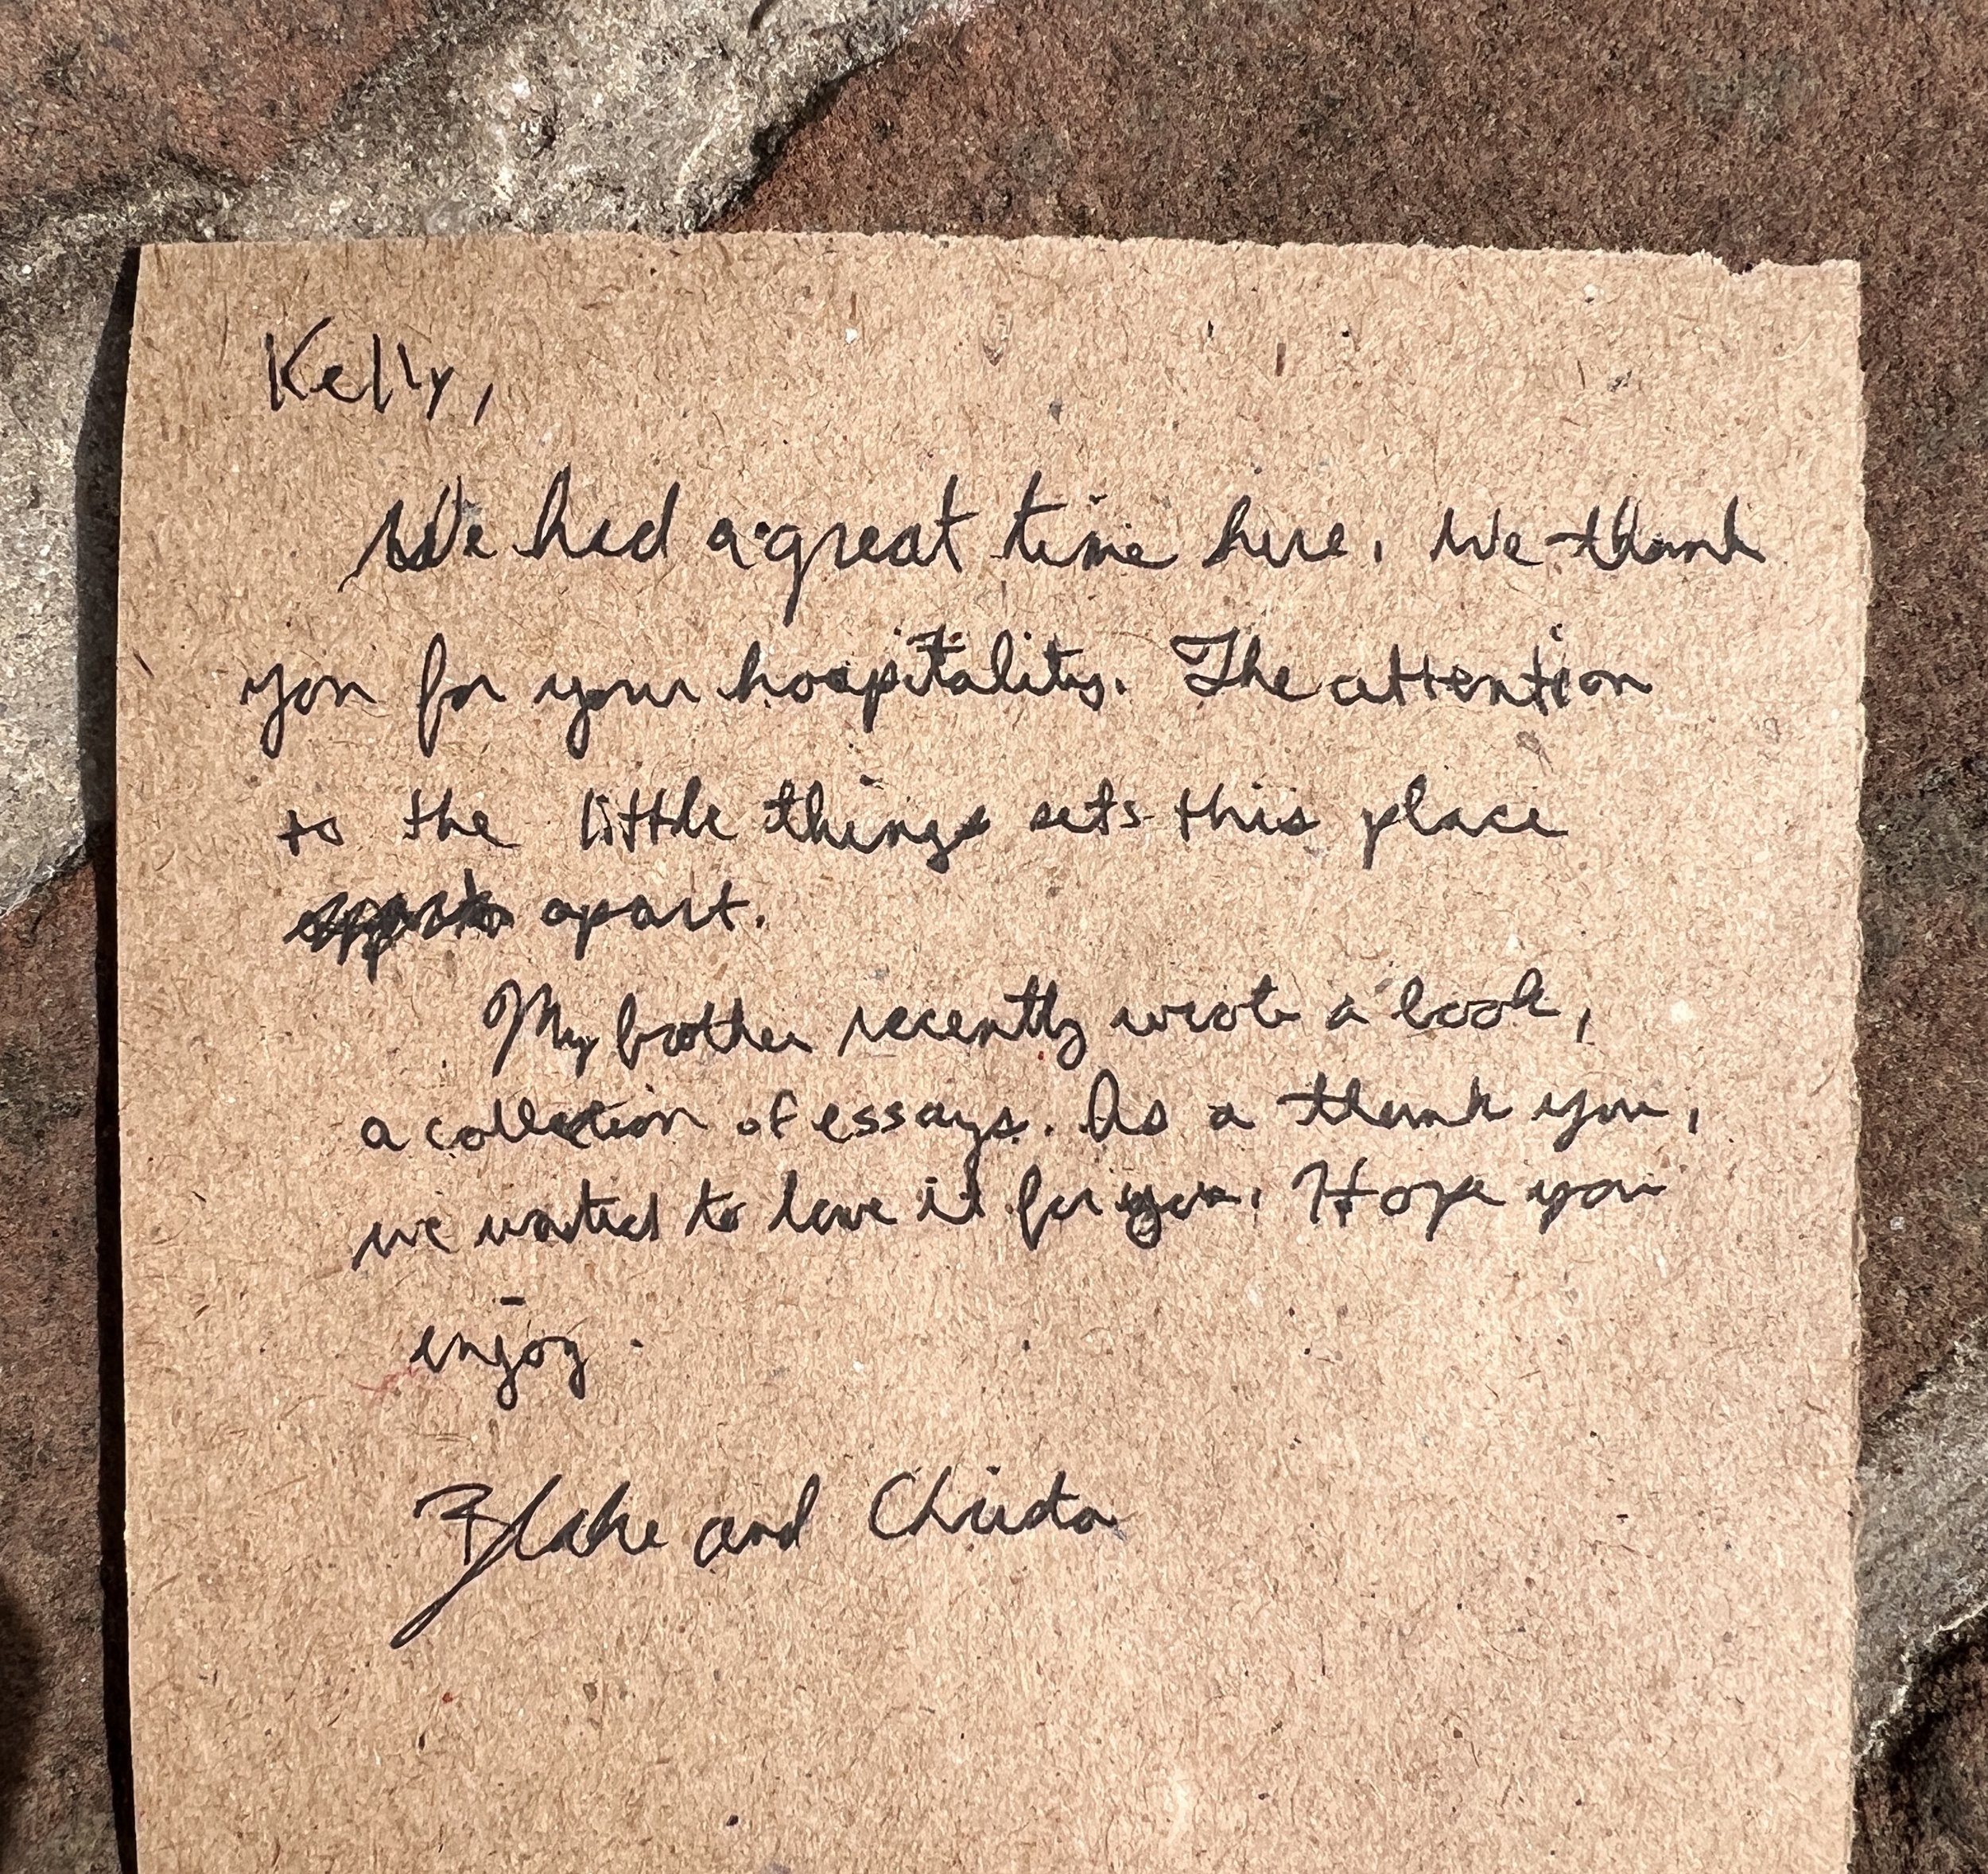 Kelly,
We had a great time here. We thank
you for your hospitality. The attention
to the little things sets this place
apart.
My brother recently wrote a book,
a collection of essays. As a thank you,
we wanted to leave it for you. Hope you
enjoy.
Blake and Christa